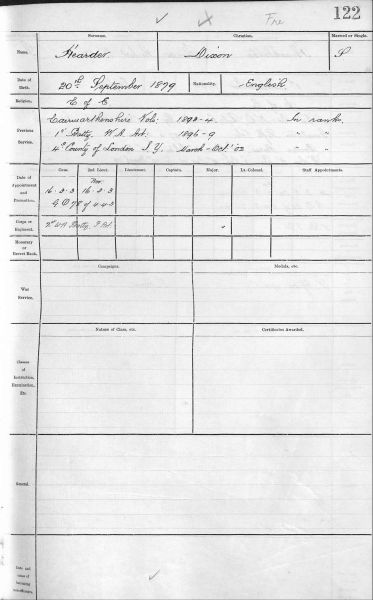 Fre
122
Surname. Christian. Married or Single.
Name. Hearder. Dixon S
Date of Birth. 20th September 1879 Nationality. English
Religion. C of E
Previous Service.
Carmarthenshire Vols: 1892-4. In ranks.
1st Batty. W.A. Art. 1896-9 " "
4th County of London I.Y. March-Oct. '02 " "
Date of Appointment and Promotion.
Com. 2nd Lieut. Lieutenant. Captain. Major. Lt.-Colonel. Staff Appointments.
16.2.3 16.2.3
Corps or Regiment.
Honorary or Brevet Rank.
Campaigns. Medals, etc.
War Service.
Names of Class, etc. Certificates Awarded.
Classes of Instruction, Examination, Etc.
General.
Date and cause of becoming